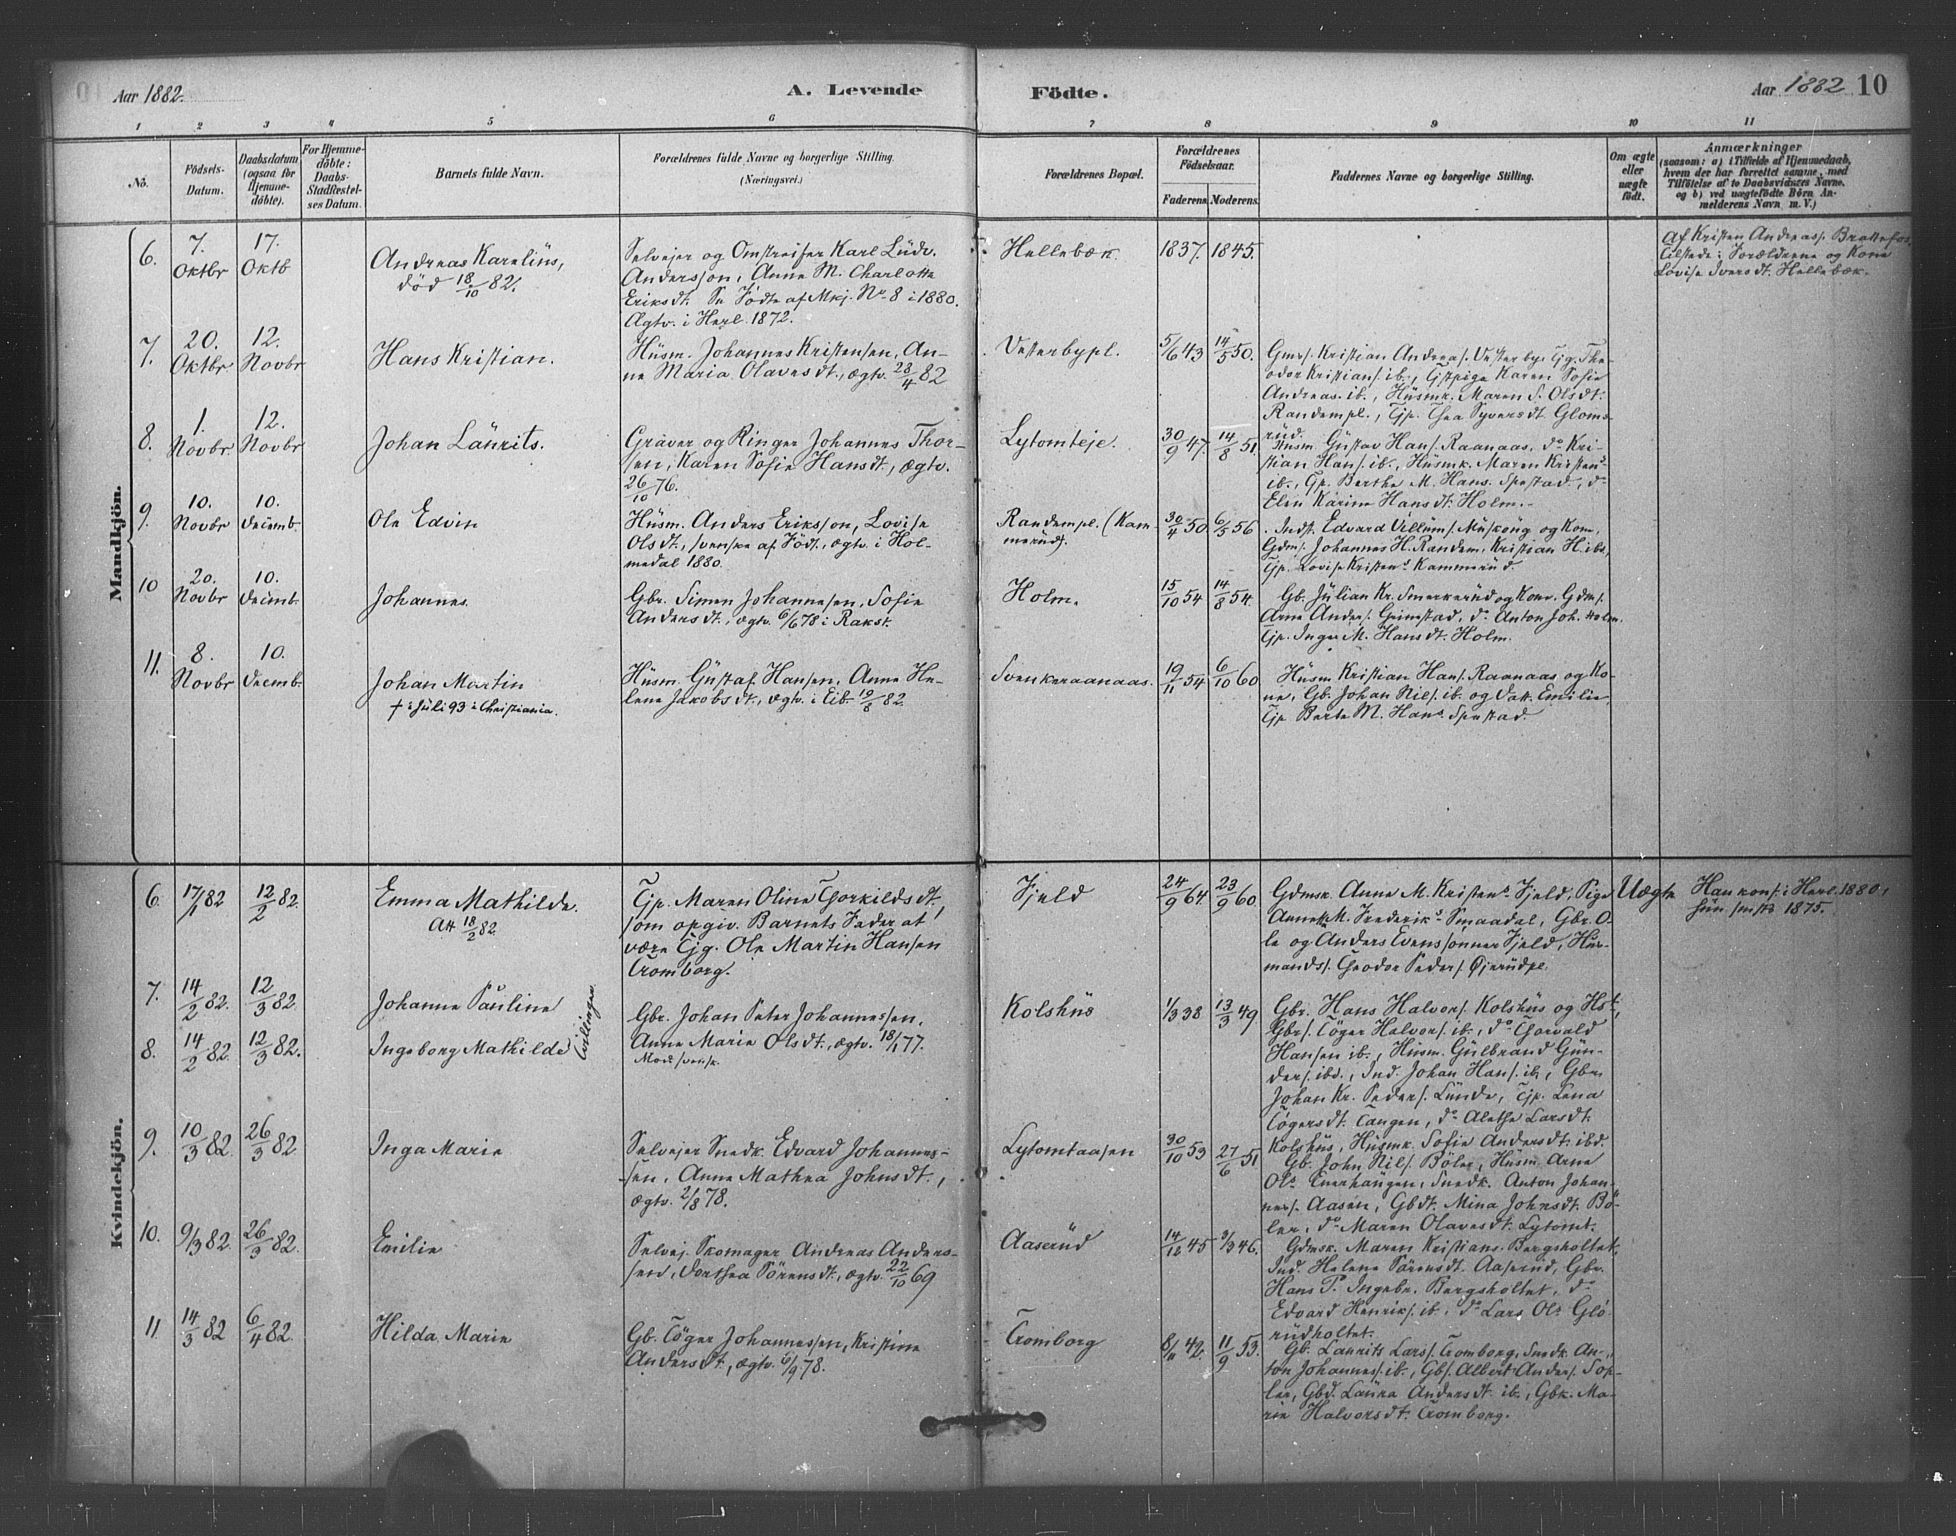 Aar 1882.
A. Levende
Födte.
Aar 1882 10
1 2 3 4 5 6 7 8 9 10 11
No.
Födsels-
Datum.
Daabsdatum
(ogsaa for
Hjemme-
döbte).
For Hjemme-
döbte:
Daabs-
Stadfæstel-
ses Datum.
Barnets fulde Navn.
Forældrenes fulde Navne og borgerlige Stilling.
(Næringsvei.)
Forældrenes Bopæl.
Forældrenes
Födselsaar.
Faderens. Moderens.
Faddernes Navne og borgerlige Stilling.
Om ægte
eller
uægte
födt.
Anmærkninger
(saasom: a) i Tilfælde af Hjemmedaab,
hvem der har forrettet samme, med
Tilföielse af to Daabsvidners Navne,
og b) ved uægtefödte Börn An-
melderens Navn m. V.)
Mandkjön.
6. 7. Oktbr 17. Oktb
Andreas Karelius,
död 18/10 82.
Selvejer og Omstreifer Karl Ludv.
Andersson, Anna M. Charlotte
Eriksdt. Se Födte af Mkj. No 8 i 1880.
Ægtv. i Herl. 1872.
Hellebæk. 1837. 1845.
Af Kristen Andreas. Brattefos,
tilstede: Forældrene og Kone
Lovise Iversdt. Hellebæk.
7. 20. Oktbr 12. Novbr
Hans Kristian.
Husm. Johannes Kristensen, An-
ne Maria Olavesdt., ægtv. 23/4 82
Vesterbypl. 5/6 43 14/5 50.
Gms. Kristian Andreas. Vesterby, Tjg. The-
odor Kristians. ib., Tjstpige Karen Sofie
Andreas. ib., Husmk. Maren S. Olsdt.
Randempl., Tjp. Thea Syversdt Gloms-
rud.
8. 1. Novbr 12. Novbr
Johan Laurits.
Graver og Ringer Johannes Thor-
sen, Karen Sofie Hansdt., ægtv.
26/10 76.
Lytomteje. 30/9 47. 14/8 51.
Husm. Gustav Hans. Raanaas, do Kri-
stian Hans. ib., Husmk. Maren Kristens.
ib., Tjp. Berthe M. Hans. Spestad., do
Elen Karine Hansdt. Holm.
9. 10. Novbr 10. Decemb.
Ole Edvin
Husm. Anders Eriksson, Lovise
Olsdt., svenske af Föds., ægtv. i Hol-
medal 1880.
Randempl. (Kam-
merud). 30/4 50. 6/5 56
Indst. Edvard Villums. Muskoug og Kone,
Gdms. Johannes H. Randem, Kristian H. ibs,
Tjp. Lovise Kristens. Kammerud.
10 20. Novbr 10. Decemb.
Johannes.
Gbr. Simen Johannesen, Sofie
Andersdt., ægtv. 6/6 78 i Rakst.
Holm. 15/10 54 14/8 54.
Gb. Julian Kr. Smerkerud og Kone, Gdms.
Arne Anders. Grimstad, do Anton Joh. Holm.
Tjp. Inger M. Hansdt. Holm.
11. 8. Novbr 10. Decemb.
Johan Martin
† i Juli 93 i Christiania.
Husm. Gustaf Hansen, Anne He-
lene Jakobsdt., ægtv. i Eib. 19/8 82.
Svenkeraanaas. 19/11 54 6/10 60
Husm. Kristian Hans. Raanaas og Ko-
ne, Gb. Johan Nils. ib. og Datt. Emilie,
Tjp. Berte M. Hans. Spestad.
Kvindekjön.
6. 17/1 82 12/2 82.
Emma Mathilde.
Att 18/2 82.
Tjp. Maren Oline Thorkildsdt,
som opgiv. Barnets Fader at
være Tjg. Ole Martin Hansen
Tromborg.
Fjeld 24/9 64. 23/9 60.
Gdmsk. Anne M. Kristens. Fjeld, Pige
Anne M. Frederiks. Smaadal, Gbr. O-
le og Anders Evenssönner Fjeld, Hus-
mands. Theodor Peders. Ojerudpl.
Uægte
Han konf. i Herl. 1880,
hun smstds 1875.
7. 14/2 82. 12/3 82.
Johanne Pauline
Tvilinger
Gbr. Johan Peter Johannessen,
Anne Marie Olsdt., ægtv. 18/1 77.
Mod. svensk.
8. 14/2 82. 12/3 82.
Ingeborg Mathilde
Kolshus 1/3 38 13/3 49
Gbr. Hans Halvors. Kolshus og Hst,
Gbr. Töger Halvors. ib., do Thorvald
Hansen ib., Husm. Gulbrand Gun-
ders. ibd., Ind. Johan Hans. ib., Gbr.
Johan Kr. Peders. Lunde, Tjp. Lena
Tögersdt. Tangen, do Alethe Larsdt.
Kolshus, Husmk. Sofie Andersdt. ibd.
9. 10/3 82. 26/3 82
Inga Marie
Selvejer Snedk. Edvard Johannes-
sen, Anne Mathea Johnsdt.,
ægtv. 2/8 78.
Lytomtaasen 30/10 53 27/6 51
Gb. John Nils. Böler, Husm. Arne
Ols. Tuerhaugen, Snedk. Anton Johan-
nes. Aasen, Gbdt. Mina Johnsdt. Bö-
ler, do Maren Olavesdt. Lytomt.
10. 9/3 82. 26/3 82.
Emilie
Selvej. Skomager Andreas Anders-
sen, Dorthea Sörensdt., ægtv. 22/10 69
Aaserud 14/12 45 3/3 46.
Gdmsk. Maren Kristians. Bergsholtet,
Ind. Helene Sörensdt. Aaserud, Gbr.
Hans P. Ingebr. Bergsholtet, do
Edvard Henriks. ib., do Lars Ols. Glo-
rudholtet.
11 14/3 82 6/4 82.
Hilda Marie
Gb. Töger Johannessen, Kristine
Andersdt., ægtv. 6/9 78.
Tromborg 8/11 42. 11/9 53.
Gb. Laurits Lars. Tromborg, Snedk. An-
ton Johannes. ib., Gbs. Albert Anders. Top-
ler, Gbd. Laura Andersdt. ib., Gbk. Ma-
rie Halvorsdt. Tromborg.